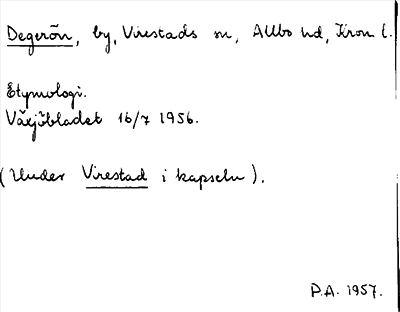 Degerön, by, Virestads sn, Allbo hd, Kron l.
Etymologi.
Växjöbladet 16/7 1956.
(Under Virestad i kapseln).
P.A. 1957.